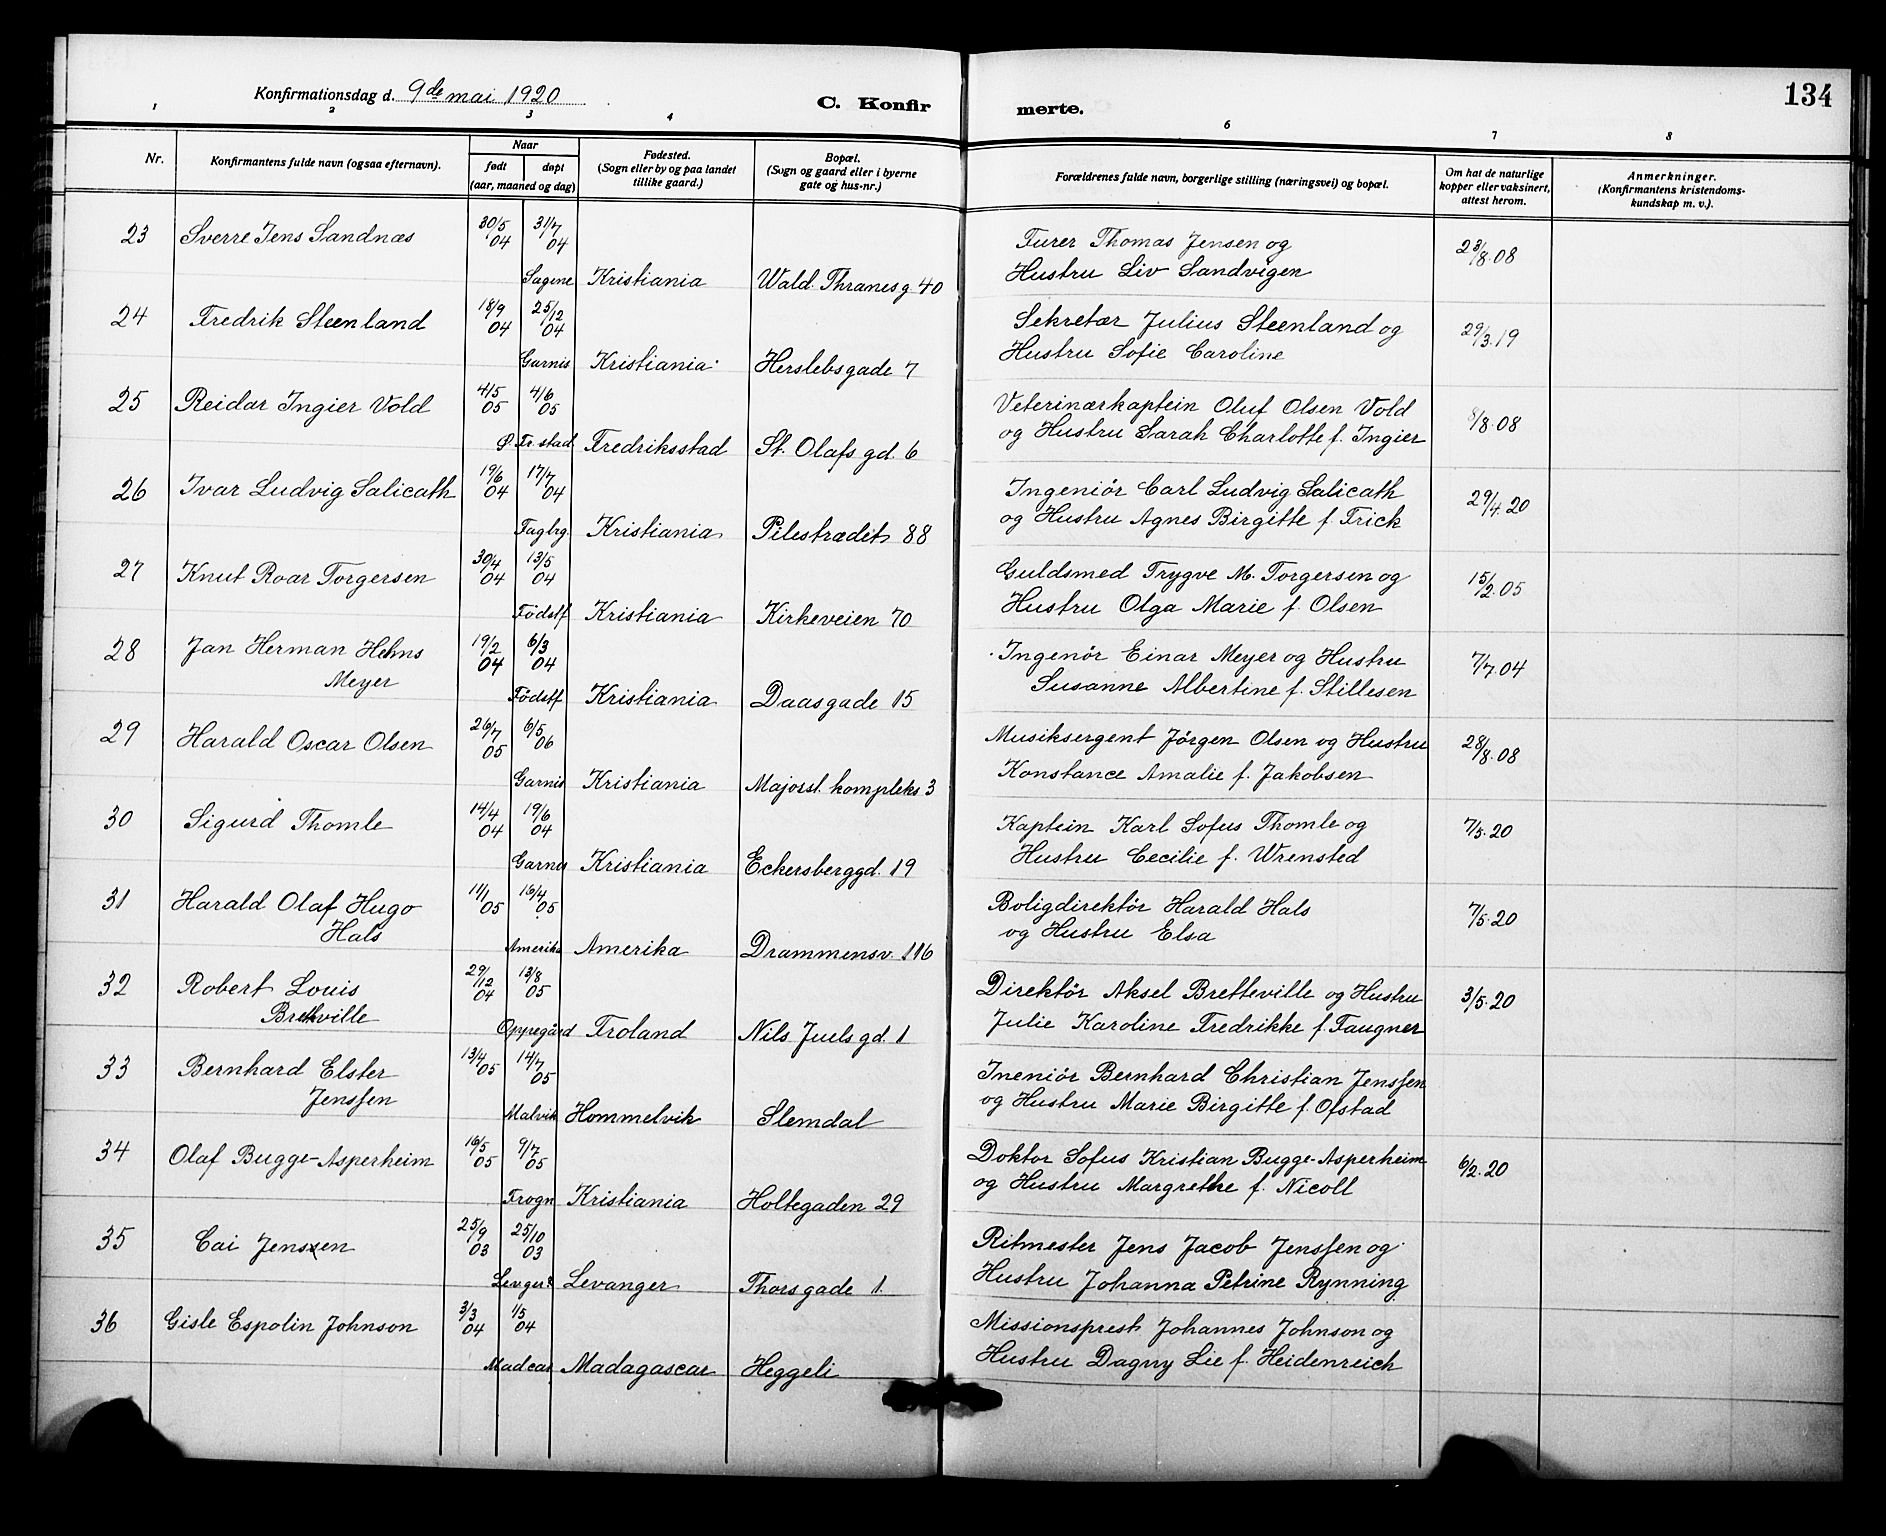 Konfirmationsdag d. 9de mai 1920
C. Konfirmerte.
134
1 2 3 4 6 7 8
Nr. Konfirmantens fulde navn (ogsaa efternavn). Naar født døpt (aar, maaned og dag) Fødested. (Sogn eller by og paa landet tillike gaard.) Bopæl. (Sogn og gaard eller i byerne gate og hus-nr.) Forældrenes fulde navn, borgerlige stilling (næringsvei) og bopæl. Om hat de naturlige kopper eller vaksinert, attest herom. Anmerkninger. (Konfirmantens kristendomskundskap m. v.).
23 Sverre Jens Sandnæs 30/5 04 31/7 04 Furer Thomas Jensen og 23/8.08
Sagene Kristiania Wald. Thranesg. 40 Hustru Liv Sandvigen
24 Fredrik Steenland 18/9 04 25/12 04 Sekretær Julius Steenland og 29/3.19
Garnis Kristiania Herslebsgade 7 Hustru Sofie Caroline
25 Reidar Ingier Vold 4/5 05 4/6 05 Veterinærkaptein Oluf Olsen Vold 8/8.08
Ø. Fr.stad Fredriksstad St. Olafs gd. 6 og Hustru Sarah Charlotte f. Ingier
26 Ivar Ludvig Salicath 19/6 04 17/7 04 Ingeniör Carl Ludvig Salicath 29/4.20
Fagbrg. Kristiania Pilestrædet 88 og Hustru Agnes Birgitte f. Frick
27 Knut Roar Torgersen 30/4 04 13/5 04 Guldsmed Trygve M. Torgersen og 15/2.05
Födstf Kristiania Kirkeveien 70 Hustru Olga Marie f. Olsen
28 Jan Herman Hehns 19/2 04 6/3 04 Ingenör Einar Meyer og Hustru 7/7.04
Meyer Födstf Kristiania Daasgade 15 Susanne Albertine f. Stillesen
29 Harald Oscar Olsen 26/7 05 6/5 06 Musiksergent Jörgen Olsen og Hustru 28/8.08
Garnis Kristiania Majorst. kompleks 3 Konstance Amalie f. Jakobsen
30 Sigurd Thomle 14/4 04 19/6 04 Kaptein Karl Sofus Thomle og 7/5.20
Garnis Kristiania Eckersberggd. 19 Hustru Cecilie f. Wrensted
31 Harald Olaf Hugo 11/1 05 16/4 05 Boligdirektör Harald Hals 7/5.20
Hals Amerika Amerika Drammensv. 116 og Hustru Elsa
32 Robert Louis 29/12 04 13/8 05 Direktör Aksel Bretteville og Hustru 3/5.20
Bretteville Oppegård Froland Nils Juels gd. 1 Julie Karoline Fredrikke f. Faugner
33 Bernhard Elster 13/4 05 14/7 05 Ineniör Bernhard Christian Jenssen
Jenssen Malvik Hommelvik Slemdal og Hustru Marie Birgitte f. Ofstad
34 Olaf Bugge-Asperheim 16/5 05 9/7 05 Doktor Sofus Kristian Bugge-Asperheim 6/2.20
Frogn Kristiania Holtegaden 29 og Hustru Margrethe f. Nicoll
35 Cai Jenssen 25/9 03 25/10 03 Ritmester Jens Jacob Jenssen og
Levanger Thorsgade 1. Hustru Johanna Petrine Rynning
36 Gisle Espolin Johnson 3/3 04 1/5 04 Missionsprest Johannes Johnson og
Madcar Madagascar Heggeli Hustru Dagny Lie f. Heidenreich